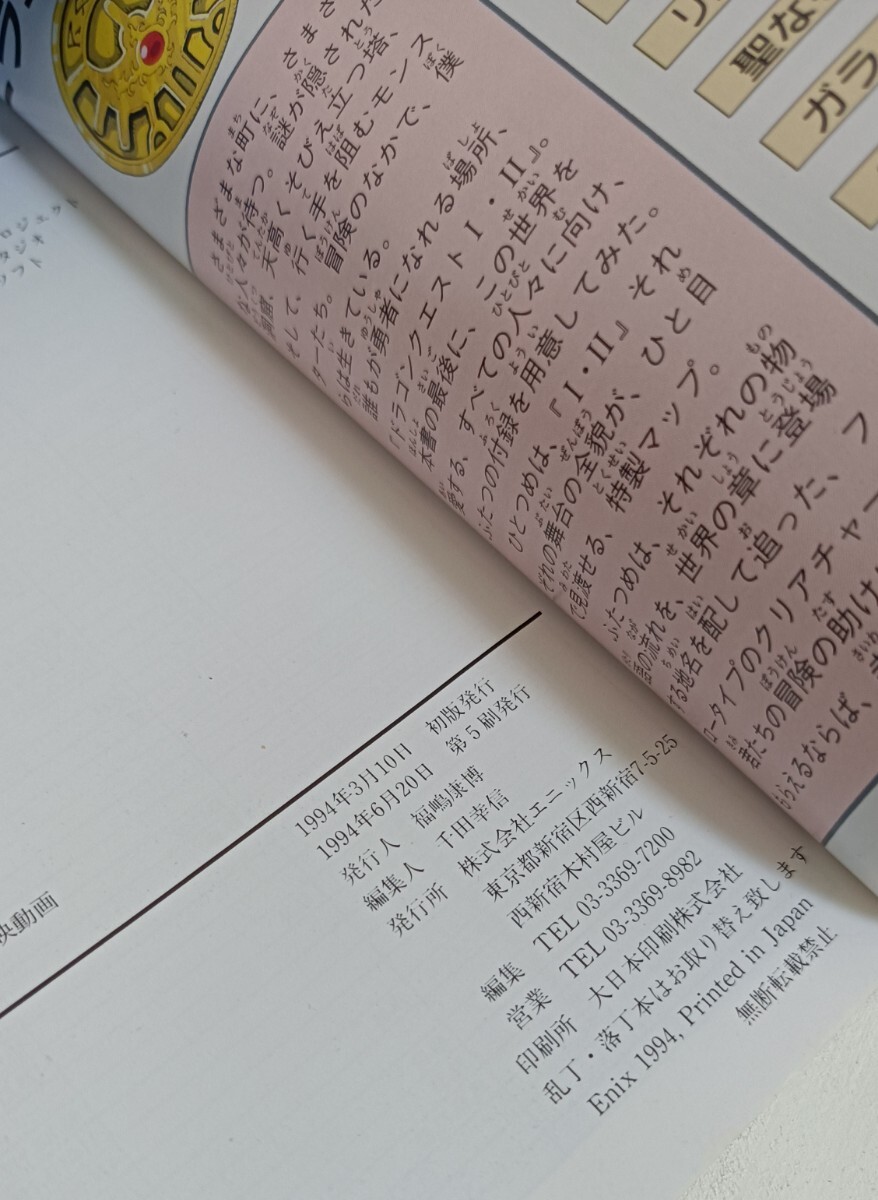 リ
聖な
ガラ
さまざまな町に、さまざま
な人々が待つ。謎が隠された
洞窟、天高くそびえ立つ塔、
そして、行く手を阻むモンス
ターたち。冒険のなかで、僕
らは生きている。
誰もが勇者になれる場所、
『ドラゴンクエストI・II』。
本書の最後に、この世界を
愛する、すべての人々に向け、
ふたつの付録を用意してみた。
ひとつめは、『I・II』それ
ぞれの舞台の全貌が、ひと目
で見渡せる、特製マップ。
ふたつめは、それぞれの物
語の流れを、世界の章に登場
する地名を配して追った、フ
ロータイプのクリアチャー
君たちの冒険の助けに
もらえるならば、
ロジェクト
タジオ
ラフト
映動画
1994年3月10日 初版発行
1994年6月20日 第5刷発行
発行人 福嶋康博
編集人 千田幸信
発行所 株式会社エニックス
東京都新宿区西新宿7-5-25
西新宿木村屋ビル
編集 TEL 03-3369-7200
営業 TEL 03-3369-8982
印刷所 大日本印刷株式会社
乱丁・落丁本はお取り替え致します
Enix 1994, Printed in Japan
無断転載禁止